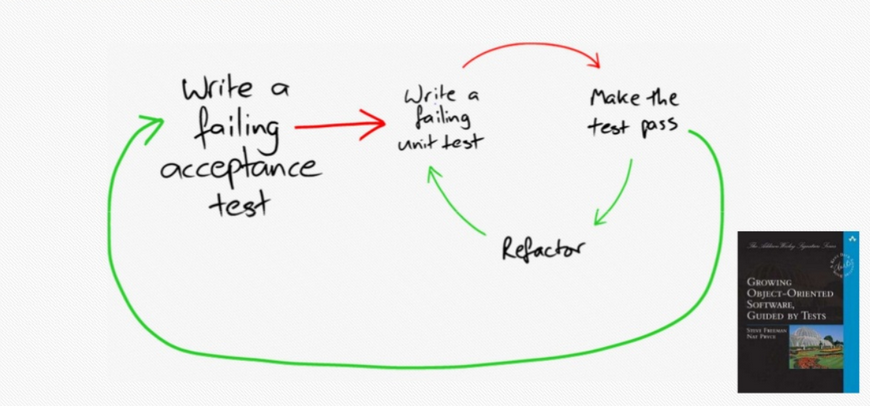 Write a
failing
acceptance
test
Write a
failing
unit test
Make the
test pass
Refactor
The Addison-Wesley Signature Series
GROWING
OBJECT-ORIENTED
SOFTWARE,
GUIDED BY TESTS
STEVE FREEMAN
NAT PRYCE